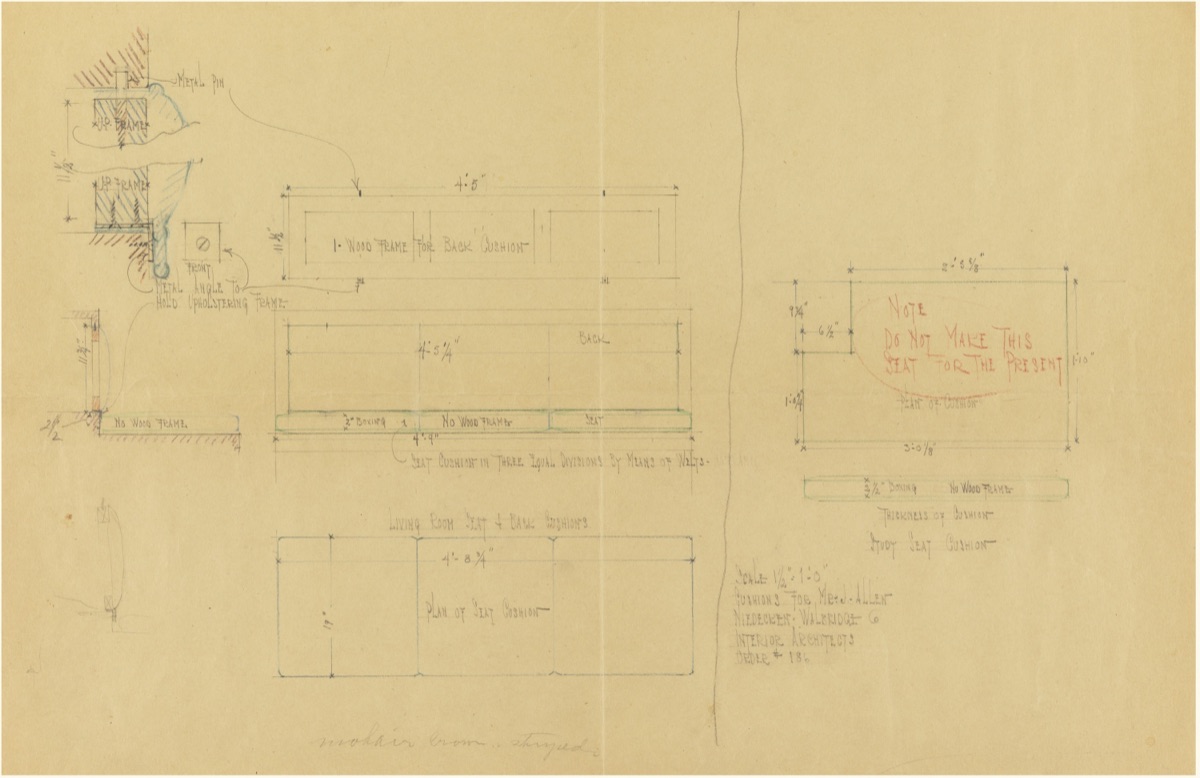 METAL PIN
UP. FRAME
11 1/2"
UP. FRAME
FRONT
METAL ANGLE TO
HOLD UPHOLSTERING FRAME
4'-5"
11 1/2"
1- WOOD FRAME FOR BACK CUSHION
BACK
11 3/4"
NO WOOD FRAME
2" BOXING
NO WOOD FRAME
SEAT
SEAT CUSHION IN THREE EQUAL DIVISIONS BY MEANS OF WELTS-
LIVING ROOM SEAT & BACK CUSHIONS
4'- 8 3/4"
PLAN OF SEAT CUSHION
17"
mohair brown striped
9 3/4"
6 1/2"
NOTE
DO NOT MAKE THIS
SEAT FOR THE PRESENT
1'-10"
PLAN OF CUSHION
3'-0 1/8"
2 1/2" BOXING
NO WOOD FRAME
THICKNESS OF CUSHION
STUDY SEAT CUSHION
SCALE 1 1/2"- 1'-0"
CUSHIONS FOR ALLEN
NIEDECKEN-WALBRIDGE CO
INTERIOR ARCHITECTS
ORDER # 186